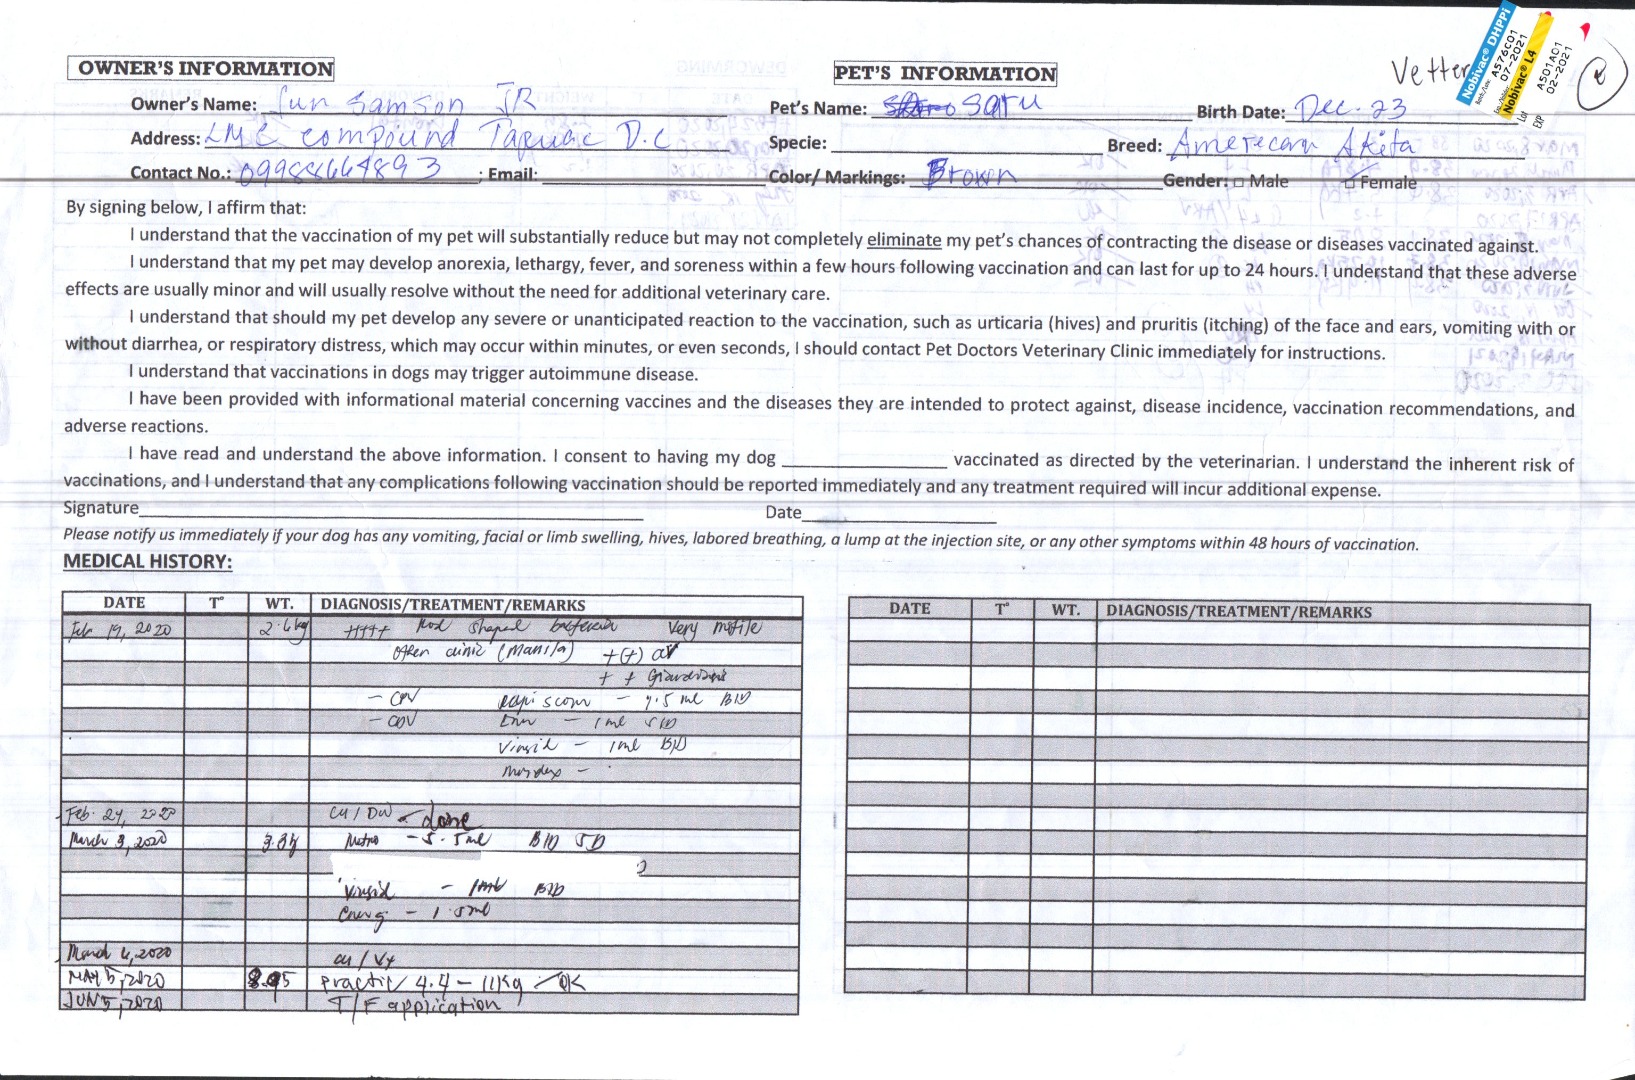 Vetter
Nobivac® DHPPi
A576C01
07-2021
Nobivac® L4
A501A01
02-2021
Lot
EXP
OWNER'S INFORMATION
PET'S INFORMATION
Owner's Name: Jun Samson JR
Pet's Name: Saru
Birth Date: Dec. 23
Address: LME compound Taguac D.C
Specie:
Breed: Amerecan Akita
Contact No.: 09988664893 ; Email:
Color/ Markings: Brown
Gender: □ Male □ Female
By signing below, I affirm that:
I understand that the vaccination of my pet will substantially reduce but may not completely eliminate my pet's chances of contracting the disease or diseases vaccinated against.
I understand that my pet may develop anorexia, lethargy, fever, and soreness within a few hours following vaccination and can last for up to 24 hours. I understand that these adverse
effects are usually minor and will usually resolve without the need for additional veterinary care.
I understand that should my pet develop any severe or unanticipated reaction to the vaccination, such as urticaria (hives) and pruritis (itching) of the face and ears, vomiting with or
without diarrhea, or respiratory distress, which may occur within minutes, or even seconds, I should contact Pet Doctors Veterinary Clinic immediately for instructions.
I understand that vaccinations in dogs may trigger autoimmune disease.
I have been provided with informational material concerning vaccines and the diseases they are intended to protect against, disease incidence, vaccination recommendations, and
adverse reactions.
I have read and understand the above information. I consent to having my dog ________ vaccinated as directed by the veterinarian. I understand the inherent risk of
vaccinations, and I understand that any complications following vaccination should be reported immediately and any treatment required will incur additional expense.
Signature
Date
Please notify us immediately if your dog has any vomiting, facial or limb swelling, hives, labored breathing, a lump at the injection site, or any other symptoms within 48 hours of vaccination.
MEDICAL HISTORY:
DATE T° WT. DIAGNOSIS/TREATMENT/REMARKS
DATE T° WT. DIAGNOSIS/TREATMENT/REMARKS
Feb 19, 2020 2.6kg Rod shaped bacteria Very motile
Other clinic (Manila)
+ + Giardiasis
- CPV - 7.5 ml BID
- CDV - 1ml SID
Virsil - 1ml BID
Feb. 24, 2020 CU / DW done
March 3, 2020 Metro - 5.5ml BID 5D
Virsil - 1ml BID
Energ - 1.5ml
March 6, 2020 CU / Vx
MAY 5, 2020 practic / 4.4 - 11kg / OK
JUN 5, 2020 T/F application